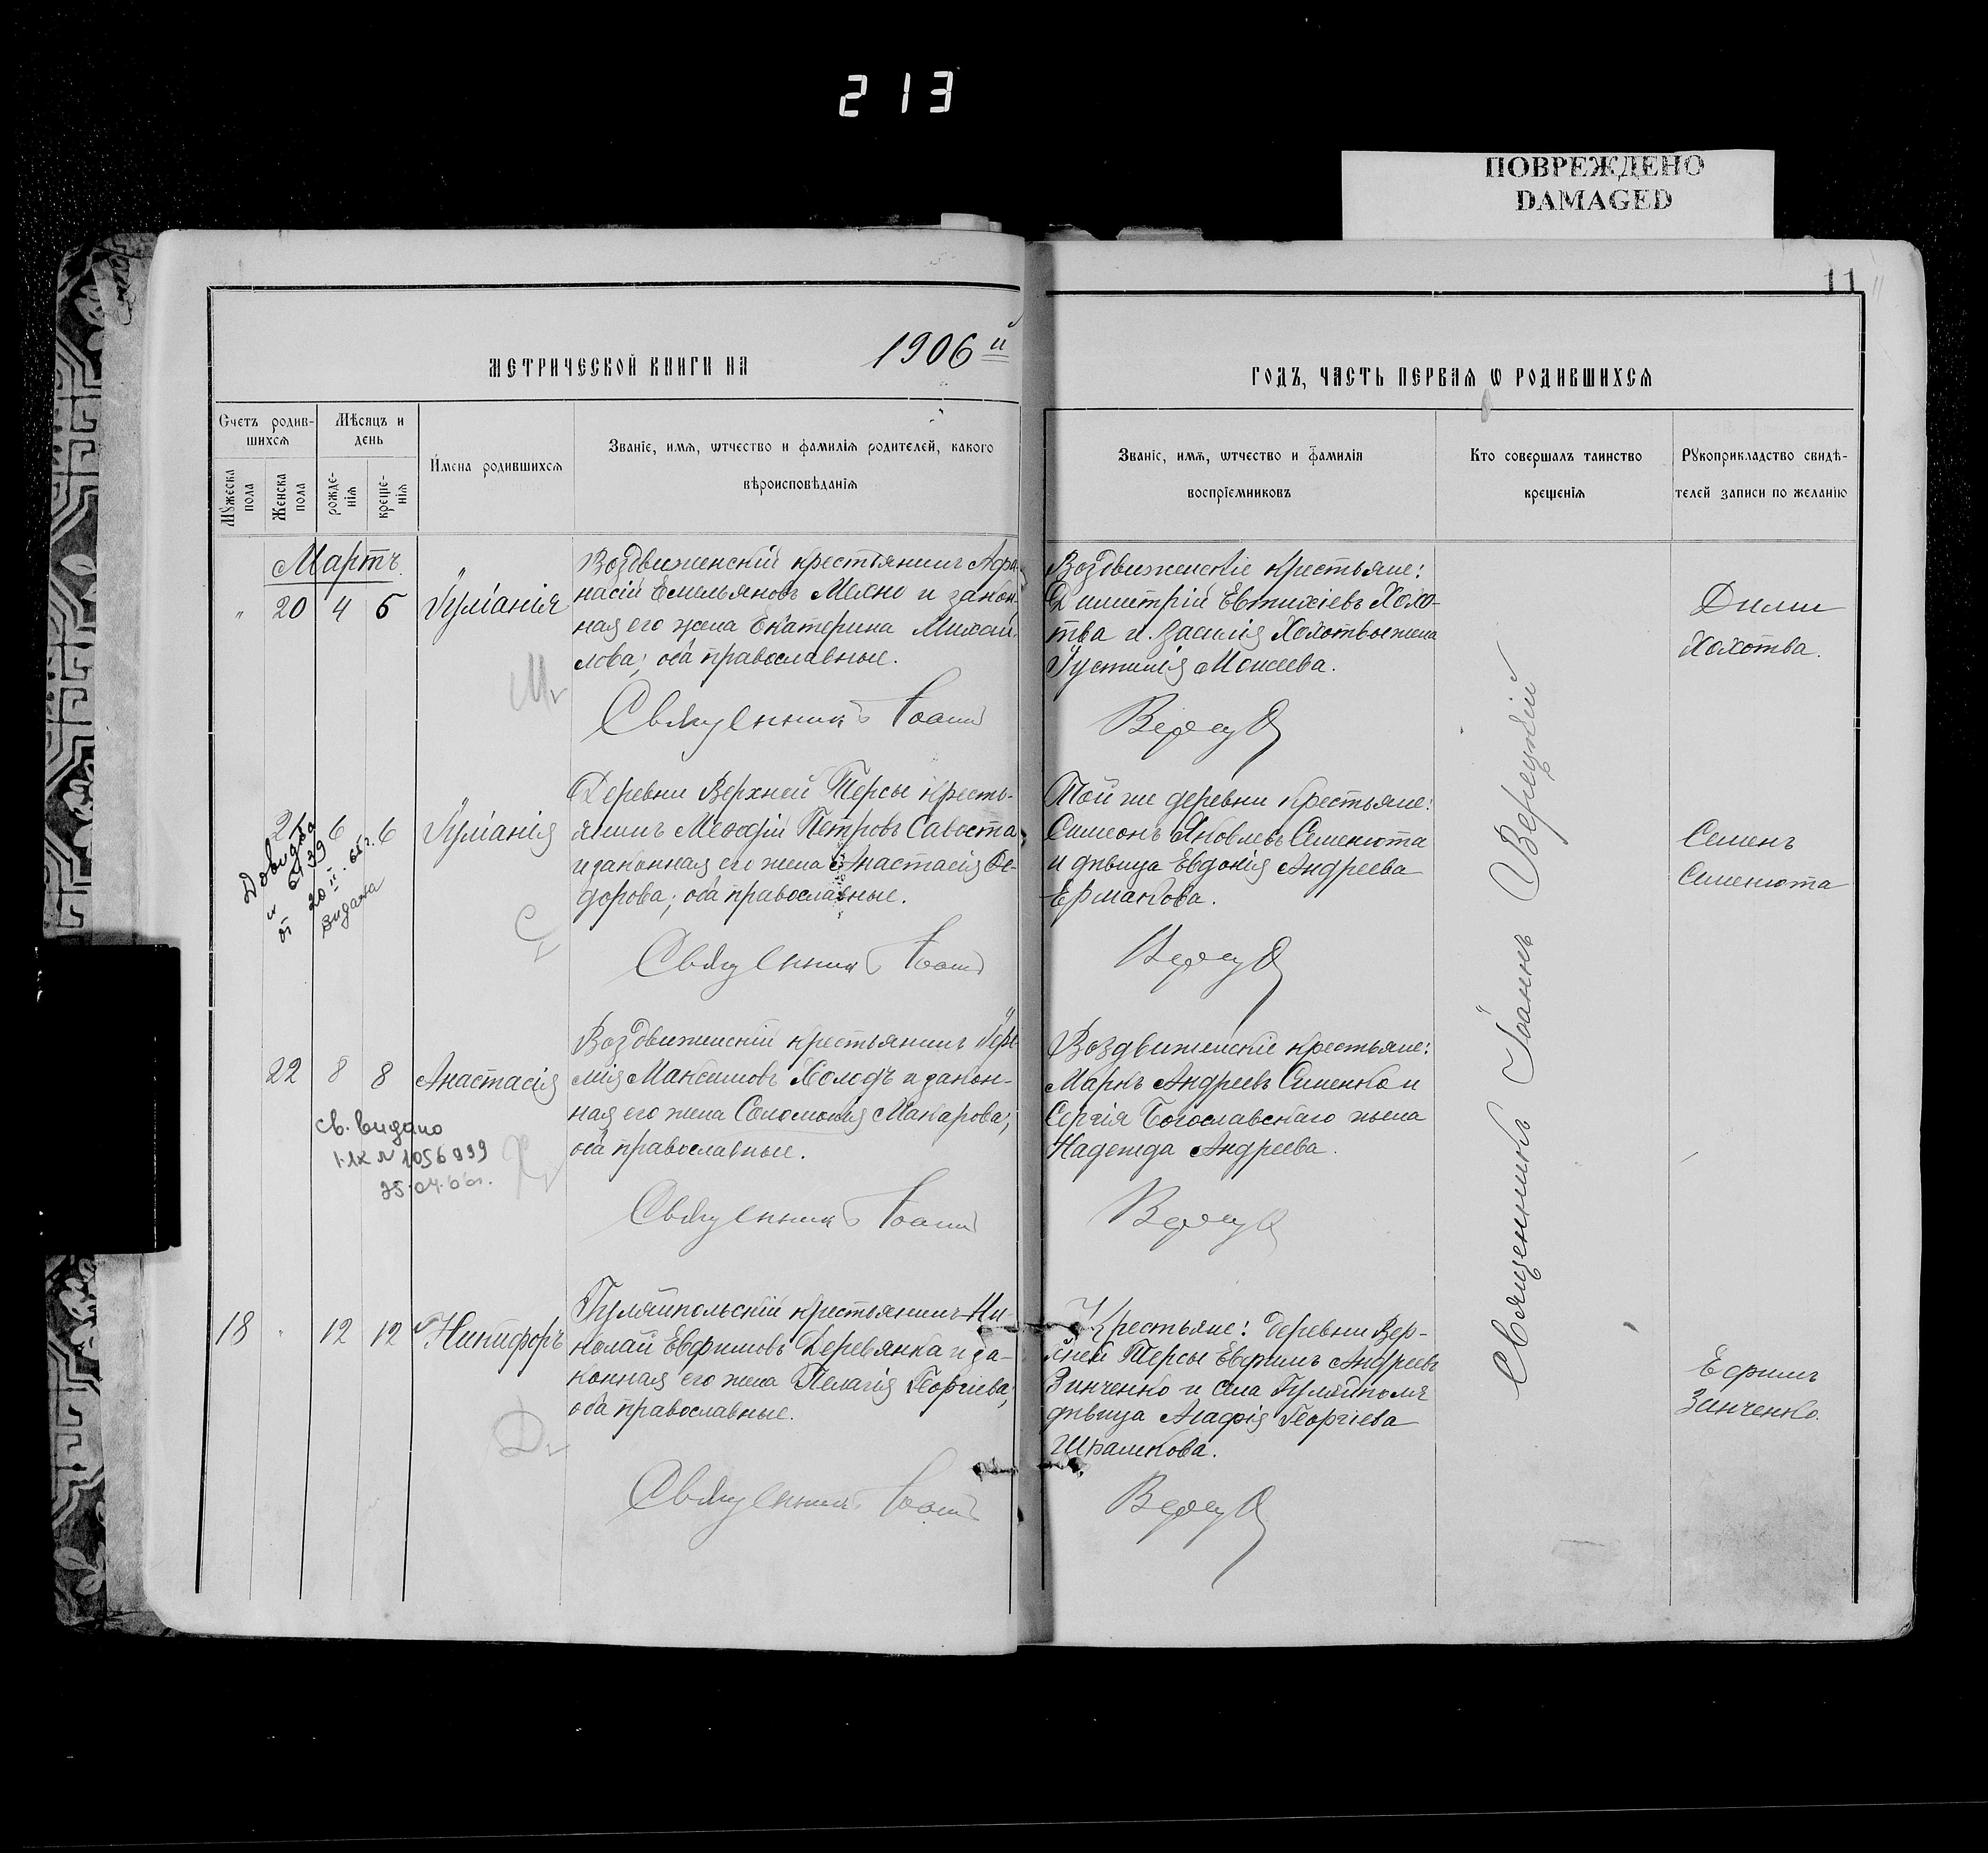 213
ПОВРЕЖДЕНО
DAMAGED
11
МЕТРИЧЕСКОЙ КНИГИ НА 1906й
ГОДЪ, ЧАСТЬ ПЕРВАЯ Ѡ РОДИВШИХСЯ
Счетъ родив-
шихся
Мѣсяцъ и
день
Мужеска
пола
Женска
пола
рожде-
нія
креще-
нія
Имена родившихся
Званіе, имя, ѡтчество и фамилія родителей, какого
вѣроисповѣданія
Званіе, имя, ѡтчество и фамилія
воспріемниковъ
Кто совершалъ таинство
крещенія
Рукоприкладство свидѣ-
телей записи по желанію
Мартъ.
" 20 4 5 Іуліанія
Воздвиженскій крестьянинъ Афа-
насій Емельяновъ и закон-
ная его жена Екатерина Михай-
лова; оба православные.
Священникъ Іоаннъ
Воздвиженскіе крестьяне:
Димитрій Евтихіевъ Хохо-
тва и Хохотвы жена
Іустинія Моисеева.
Верец
Дими
Хохотва.
21 6 6 Іуліанія
Довидка
от 20 II.
видана
Деревни Верхней Терсы кресть-
янинъ Меѳодій Петровъ Савоста
и законная его жена Анастасія Ѳе-
дорова; оба православные.
Священникъ Іоаннъ
Той же деревни крестьяне:
Симеонъ Яковлевъ Семенюта
и дѣвица Евдокія Андреева
Ермакова.
Верец
Семенъ
Семенюта
22 8 8 Анастасія
св. видано
1-ЛК № 1056999
Воздвиженскій крестьянинъ Іере-
мія Максимовъ Холодъ и закон-
ная его жена Соломонія Макарова;
оба православные.
Священникъ Іоаннъ
Воздвиженскіе крестьяне:
Маркъ Андреевъ Сименко и
Сергія Богославскаго жена
Надежда Андреева.
Верец
18 " 12 12 Никифоръ
Гуляйпольскій крестьянинъ Ни-
колай Евфимовъ Деревянка и за-
конная его жена Пелагія Георгіева;
оба православные.
Священникъ Іоаннъ
Крестьяне: деревни Вер-
хней Терсы Евфимъ Андреевъ
Зинченко и села Гуляйполя
дѣвица Агафія Георгіева
Шрамкова.
Верец
Ефимъ
Зинченко.
Священникъ Іоаннъ Верецкій